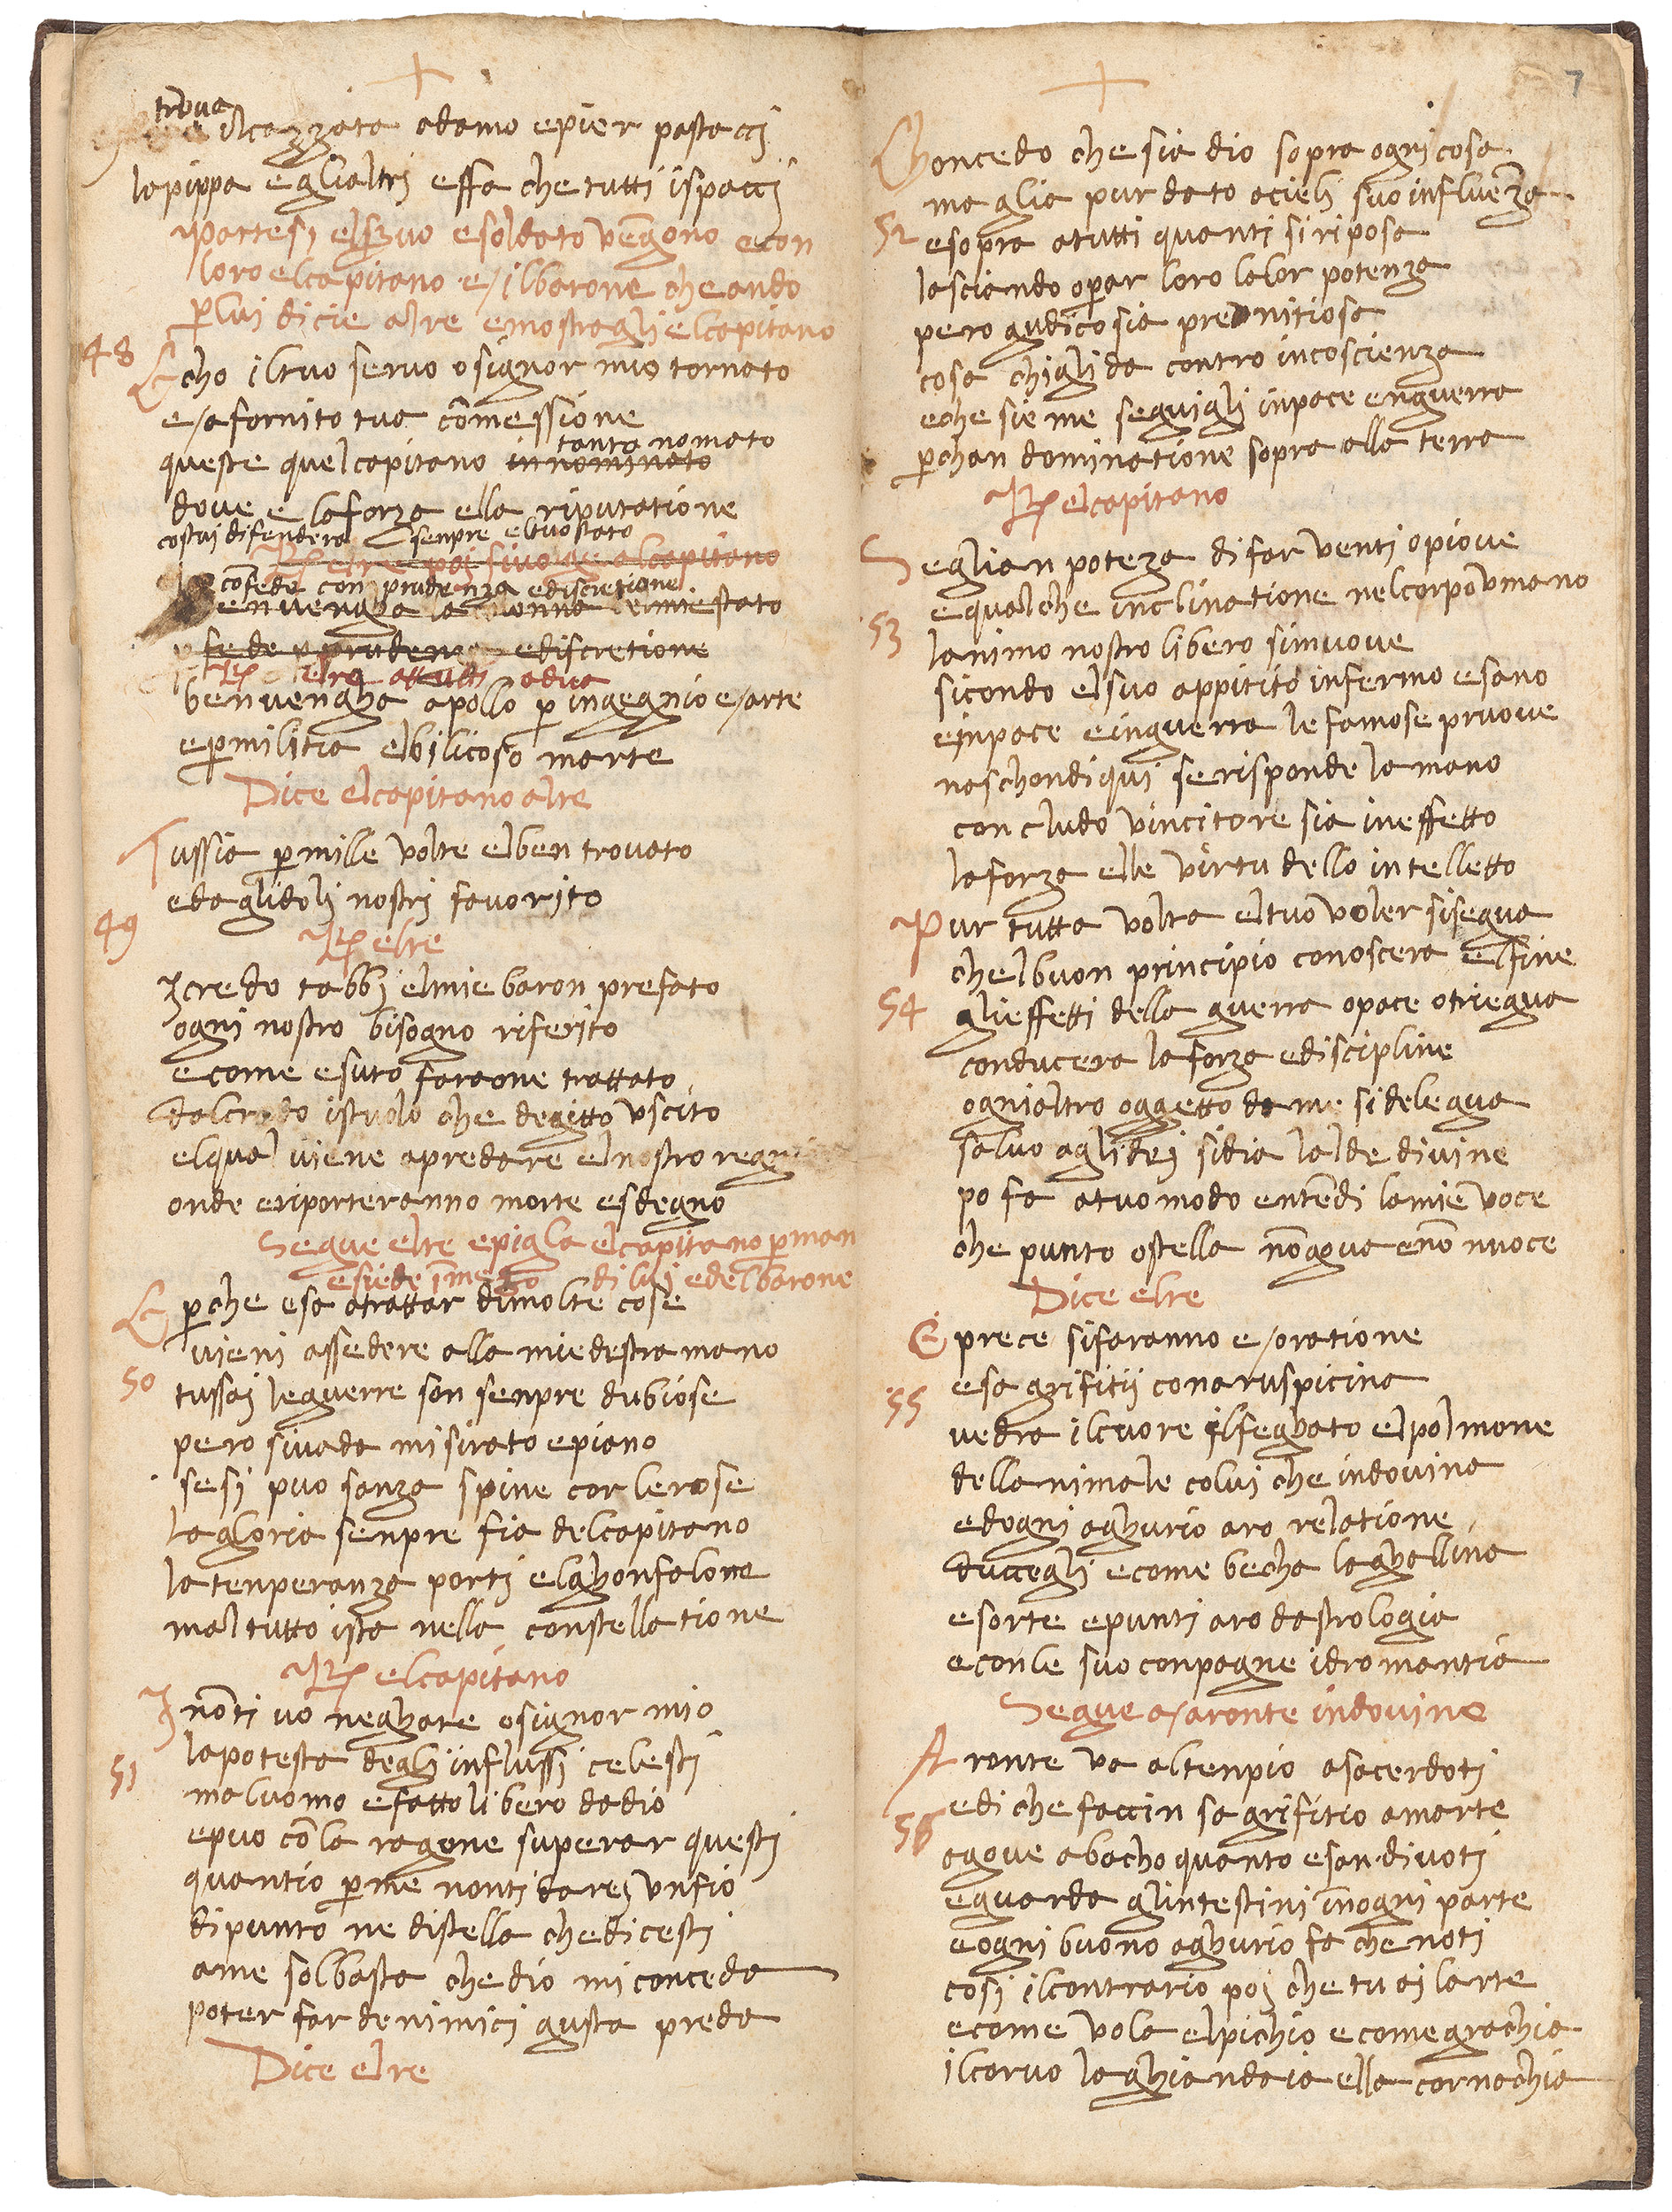 trova
ilcazzata adamo epier pastacci
lapippa eglialtri effa chetutti ispacci
Partesi elservo esoldato vēgono econ
loro elcapitano e/ilbarone cheando
p̄lui dicie alre emostragli elcapitano
48
Echo iltuo servo osignor mio tornato
e/afornito tua cōmessione
tanto nomato
queste quelcapitano innominato
dove e laforza ella riputatione
costui difendera senpre eltuostato
Rp̄ elre poi sivolge alcapitano
cōfede con prudenza ediscretione
benvengha la colonna elmiestato
p fede p prudenza ediscretione
Rp̄ elre attutti adua
benvengha apollo p̄ ingegnio e/arte
ep̄militia elbilicoso marte
Dice elcapitano alre
Tussia p̄mille volte elben trovato
edaglidoli nostri favorito
49
Rp̄ elre
Icredo tabbi elmie baron prefato
ogni nostro bisogno riferito
ecome esuto faraone trattato
dalcrudo istuolo che degitto uscito
elqual viene apredare elnostro regno
onde eriporteranno morte esdegno
Segue elre epigla elcapitano p̄man
esiede īmezo di lui edelbarone
E p̄che esa atrattar dimolte cose
vieni assedere alla miedestra mano
50
tussai leguerre son senpre dubiose
pero sivada misurato epiano
sesi puo sanza spine cor lerose
lagloria senpre fia delcapitano
latenperanza porti elghonfalone
mal tutto ista nella constellatione
Rp̄ elcapitano
I nōti vo neghare osignor mio
lapotesta degli influssi celesti
51
maluomo efatto libero dadio
epuo cōla ragone superar questi
quantio p̄me nonti darei unfio
dipunto ne distella chedicesti
ame solbasta chedio mi conceda
poter far denimici gusta preda
Dice elre
7
Choncedo che sia dio sopra ogni cosa
ma glia pur dato acieli suo influēza
52
esopra atutti quanti si riposa
lasciando op̄ar loro lalor potenza
pero gudico sia prenitiosa
cosa chigli da contro incoscienza
eche sieme seguigli inpace enguerra
p̄chan dominatione sopra alla terra
Rp̄ elcapitano
Seglian poteza difar venti opiove
equalche inclinatione nelcorpo umano
53
lanimo nostro libero simuove
sicondo elsuo appitito infermo esano
einpace einguerra lefamose pruove
naschondiqui serisponde lamano
concludo vincitore sia ineffetto
laforza elle virtu dello intelletto
Pur tutta volta eltuo voler sisegua
chelbuon principio conoscera elfine
54
glieffetti della guerra opace otriegua
conducera laforza ediscipline
ognialtro oggetto da me sidelegua
salvo aglidei sidia lalde divine
po fa atuo modo entēdi lamie voce
che punto ostella nōgova enō nuoce
Dice elre
E prece sifaranno e/oratione
55
esagrifitii conaruspicina
vedra ilcuore ilfeghato elpolmone
dellanimale colui che indovina
edogni aghurio aro relatione
duccegli ecome becha laghallina
esorte epunti aro dastrologia
econle suo conpagne idromantia
Segue a/aronte indovino
Aronte va altenpio asacerdoti
ediche faccin sagrifitio amarte
56
agove abacho quanto esan divoti
eguarda glintestini īnogni parte
eogni buono aghurio fa che noti
cosi ilcontrario poi che tu ai larte
ecome vola elpichio ecomegrachia
ilcorvo laghiandaia ella cornachia